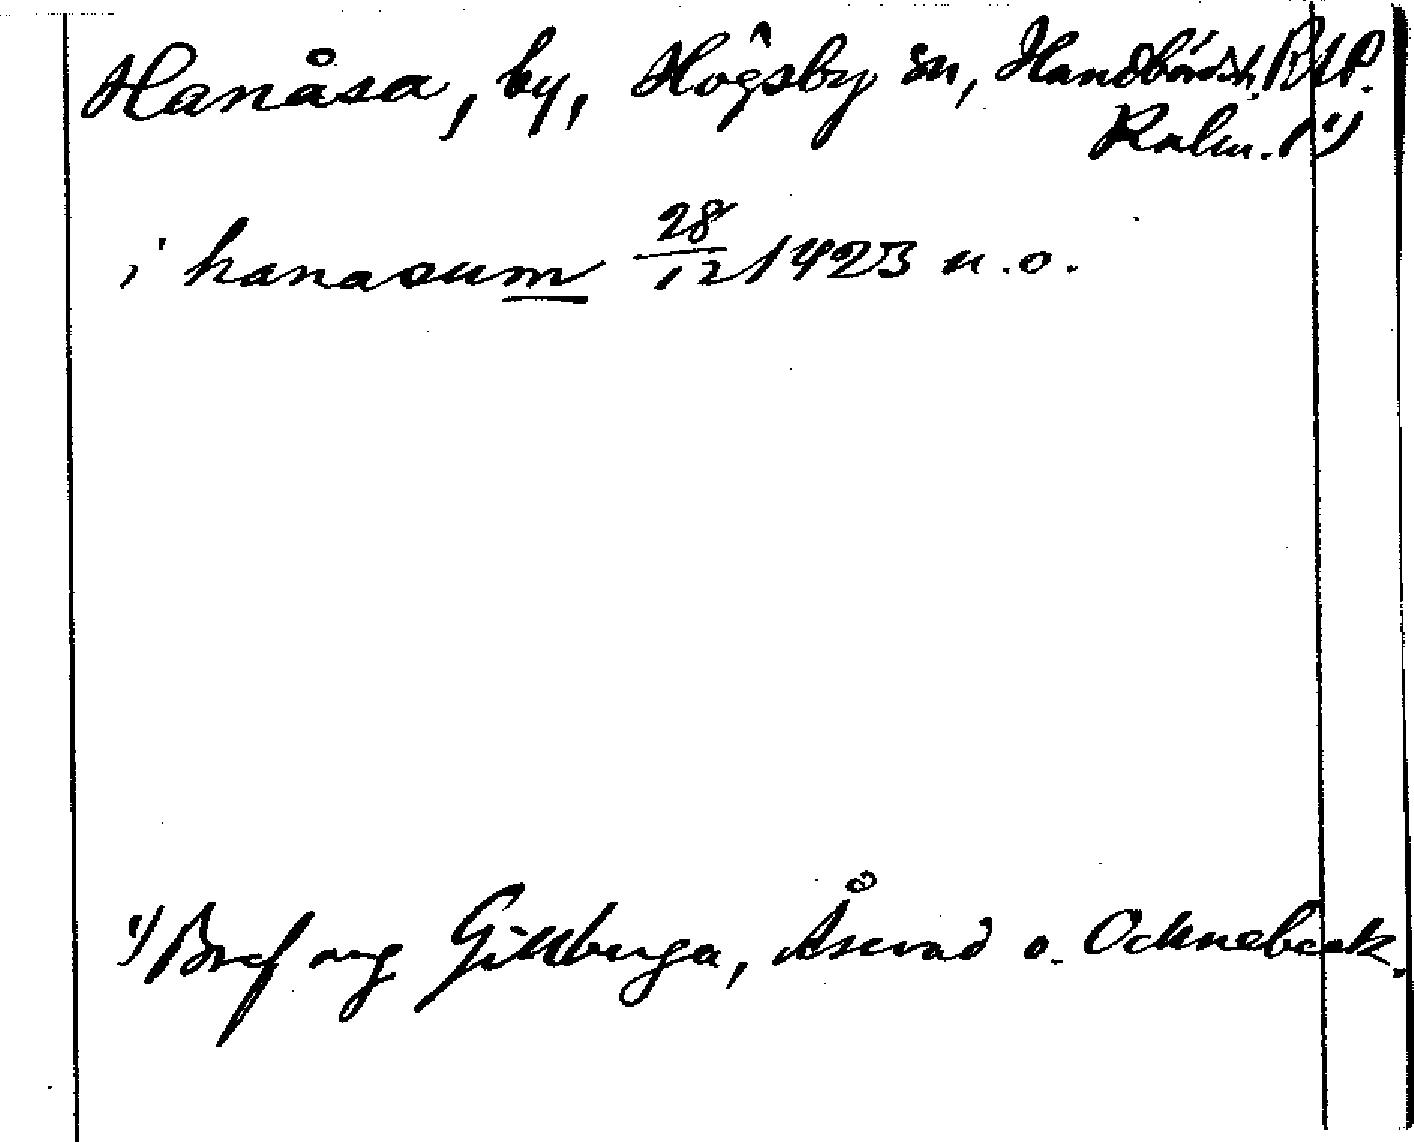 Hanåsa, by, Högsby sn, Handbörds h. RAP.
Kalm. (1)
i hanasum 28/12 1423 n.o.
1) Bref ang Gillberga, Åserad o. Ocknebeck.